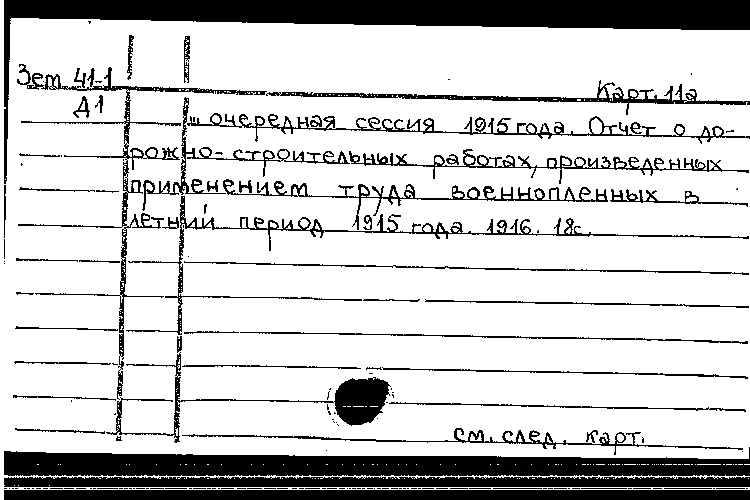 Зем 41-1
Карт. 11а
Д1
... очередная сессия 1915 года. Отчет о до-
рожно-строительных работах, произведенных
применением труда военнопленных в
летний период 1915 года. 1916. 18с.
см. след. карт.